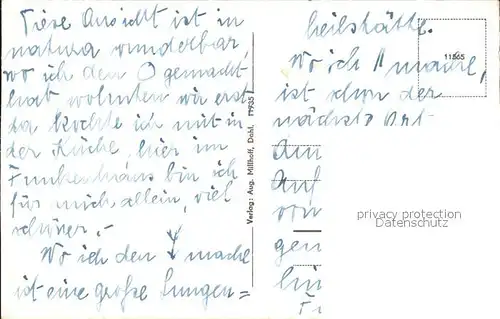 Diese Ansicht ist in
natura wunderbar,
wo ich den O gemacht
hab, wohnten wir erst
da kochte ich mit in
der Küche, hier im
Funkenhaus bin ich
für mich allein, viel
schöner.-
Wo ich den ↓ mache
ist eine große Lungen=
Verlag: Aug. Millhoff, Dahl. 11935
heilstätte.
Wo ich || mache,
ist schon der
nächste Ort
11865
auf
von
gen
privacy protection
Datenschutz